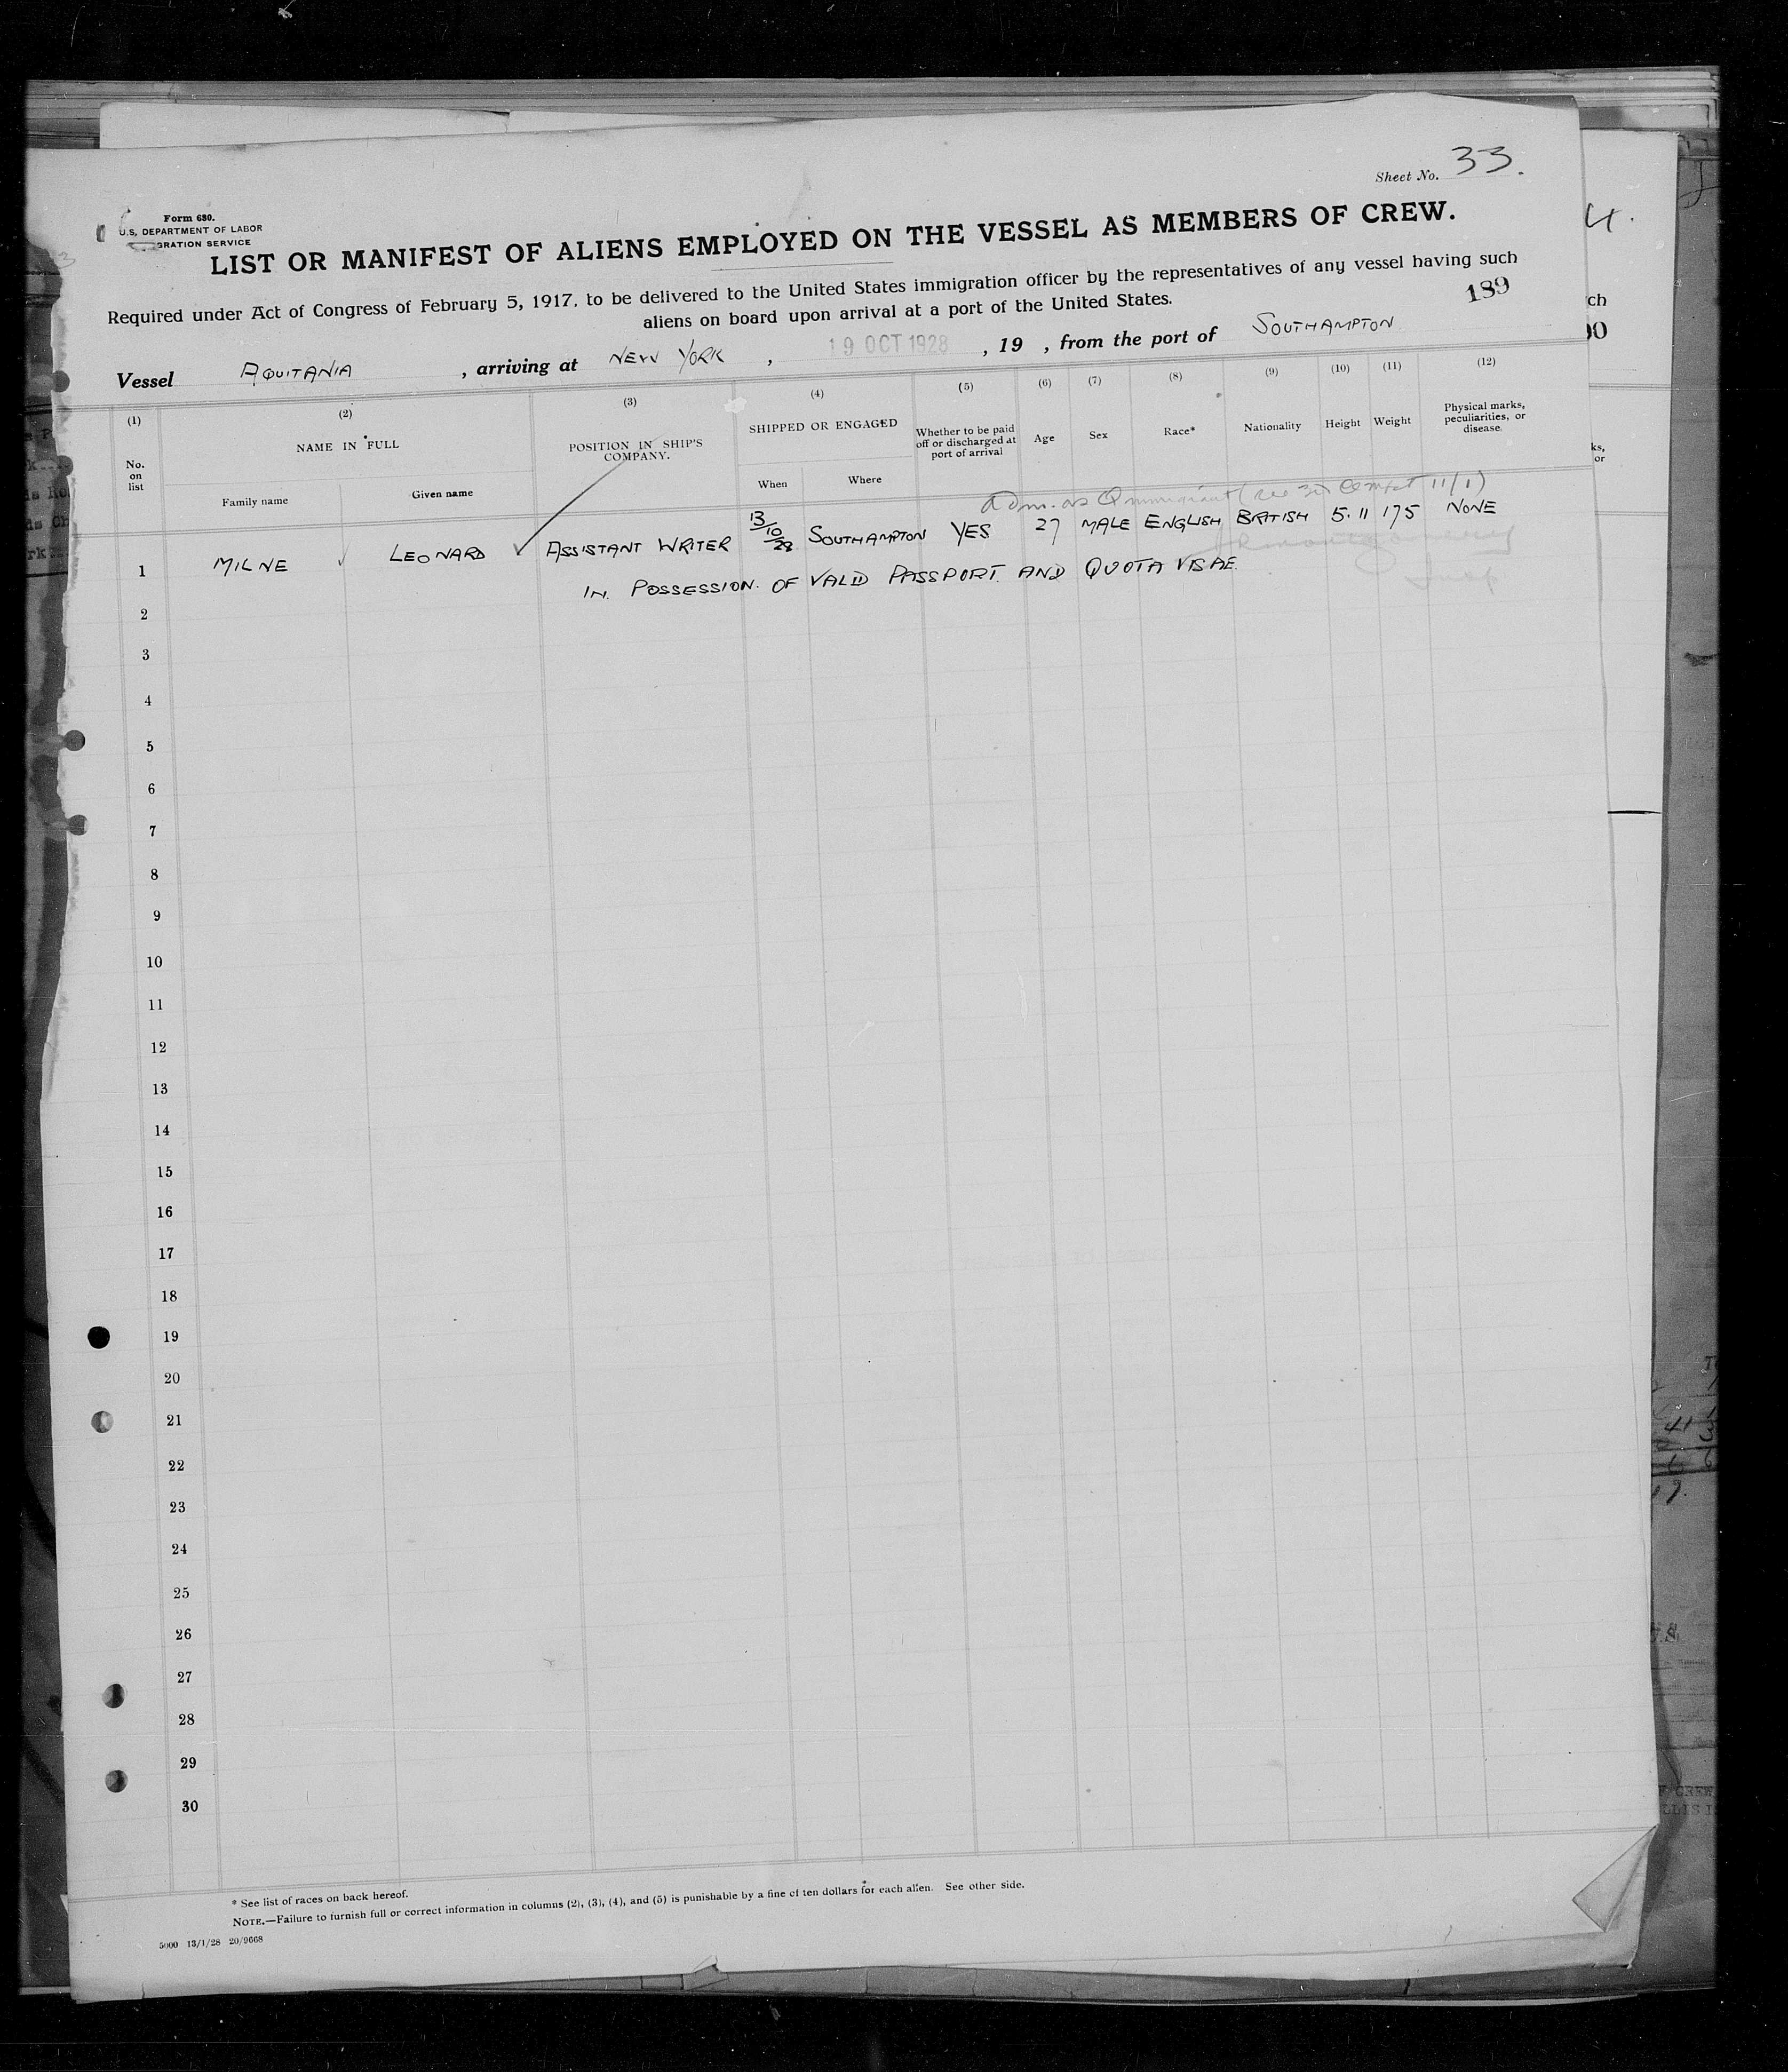 Sheet No. 33.
Form 680.
U.S. DEPARTMENT OF LABOR
GRATION SERVICE
LIST OR MANIFEST OF ALIENS EMPLOYED ON THE VESSEL AS MEMBERS OF CREW.
Required under Act of Congress of February 5, 1917, to be delivered to the United States immigration officer by the representatives of any vessel having such
aliens on board upon arrival at a port of the United States.
189
Vessel AQUITANIA, arriving at NEW YORK, 19 OCT 1928, 19 , from the port of SOUTHAMPTON
(1) (2) (3) (4) (5) (6) (7) (8) (9) (10) (11) (12)
No. on list
NAME IN FULL
Family name Given name
POSITION IN SHIP'S COMPANY.
SHIPPED OR ENGAGED
When Where
Whether to be paid off or discharged at port of arrival
Age Sex Race* Nationality Height Weight
Physical marks, peculiarities, or disease.
Adm. as Q immigrant (see 11/1)
1 MILNE LEONARD ASSISTANT WRITER 13/10/28 SOUTHAMPTON YES 27 MALE ENGLISH BRITISH 5.11 175 NONE
IN. POSSESSION. OF VALID PASSPORT. AND QUOTA VISAE.
Insp
2
3
4
5
6
7
8
9
10
11
12
13
14
15
16
17
18
19
20
21
22
23
24
25
26
27
28
29
30
* See list of races on back hereof.
NOTE.—Failure to furnish full or correct information in columns (2), (3), (4), and (5) is punishable by a fine of ten dollars for each alien. See other side.
5000 13/1/28 20/9668